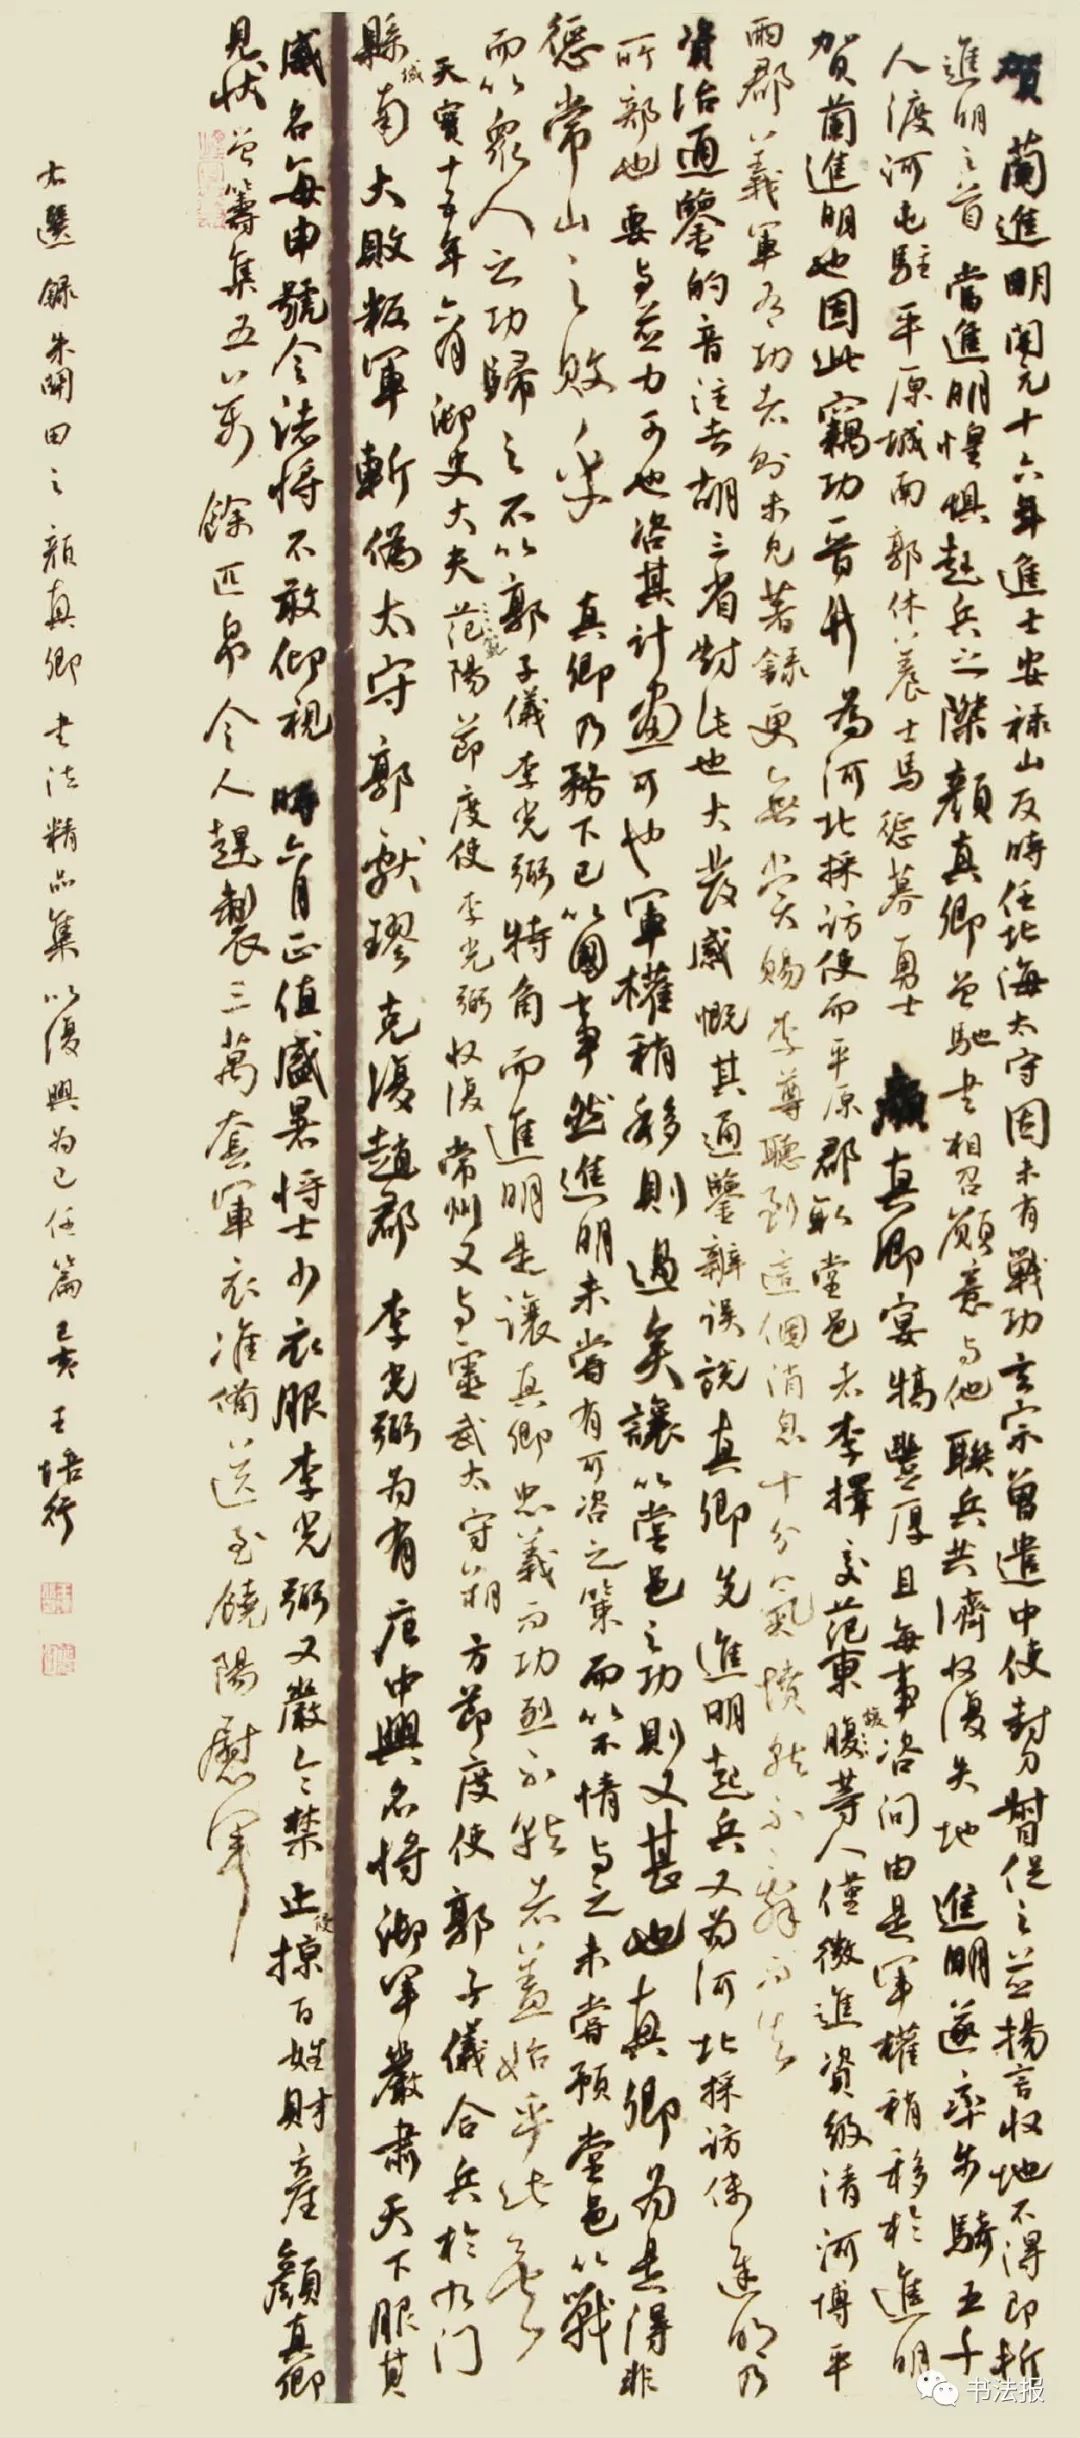 賀蘭進明開元十六年進士安祿山反時任北海太守因未有戰功玄宗曾遣中使封刀督促之并揚言收地不得即斬
進明之首 當進明惶懼起兵之際顏真卿曾馳書相召顏意与他聯兵共濟收復失地 進明遂率步騎五千
人渡河屯駐平原城南郭休養士馬懲募勇士 顏真卿宴犒豐厚且每事咨問由是軍權稍移於進明
賀蘭進明也因此竊功晉升為河北採訪使而平原郡 堂邑者李擇交范冬馥等人僅微進資級清河博平
兩郡義軍有功者則未見著錄更無賞賜李萼聽到這個消息十分氣憤 不辭而去
資治通鑒的音注者胡三省對此也大發感慨其通鑒辨误說真卿先進明起兵又為河北採访使進明乃
所部也要与并力可也咨其計畫可也軍權稍移則過矣讓以堂邑之功則又甚也真卿為是得非
懲常山之敗乎 真卿乃務下己以國事然進明未嘗有可咨之策而 不情与之未嘗預堂邑之戰
而以眾人之功歸之不以郭子儀李光弼犄角而進明是讓真卿忠義而功 不能者蓋始乎此
天寶十五年六月御史大夫范陽節度使李光弼收復常州又与靈武太守朔方節度使郭子儀合兵於九门
縣城南大敗叛軍斬偽太守郭獻璆克復趙郡 李光弼为有唐中興名將御軍嚴肅天下服其
威名每申號令諸將不敢仰視 時六月正值盛暑將士少衣服李光弼又嚴令禁止侵掠百姓財產顏真卿
見狀曾籌集五萬餘匹帛令人趕製三萬套軍衣准備送至饒陽慰軍
右選錄朱關田之顏真卿書法精品集以復興为己任篇 己亥 王培行
书法报